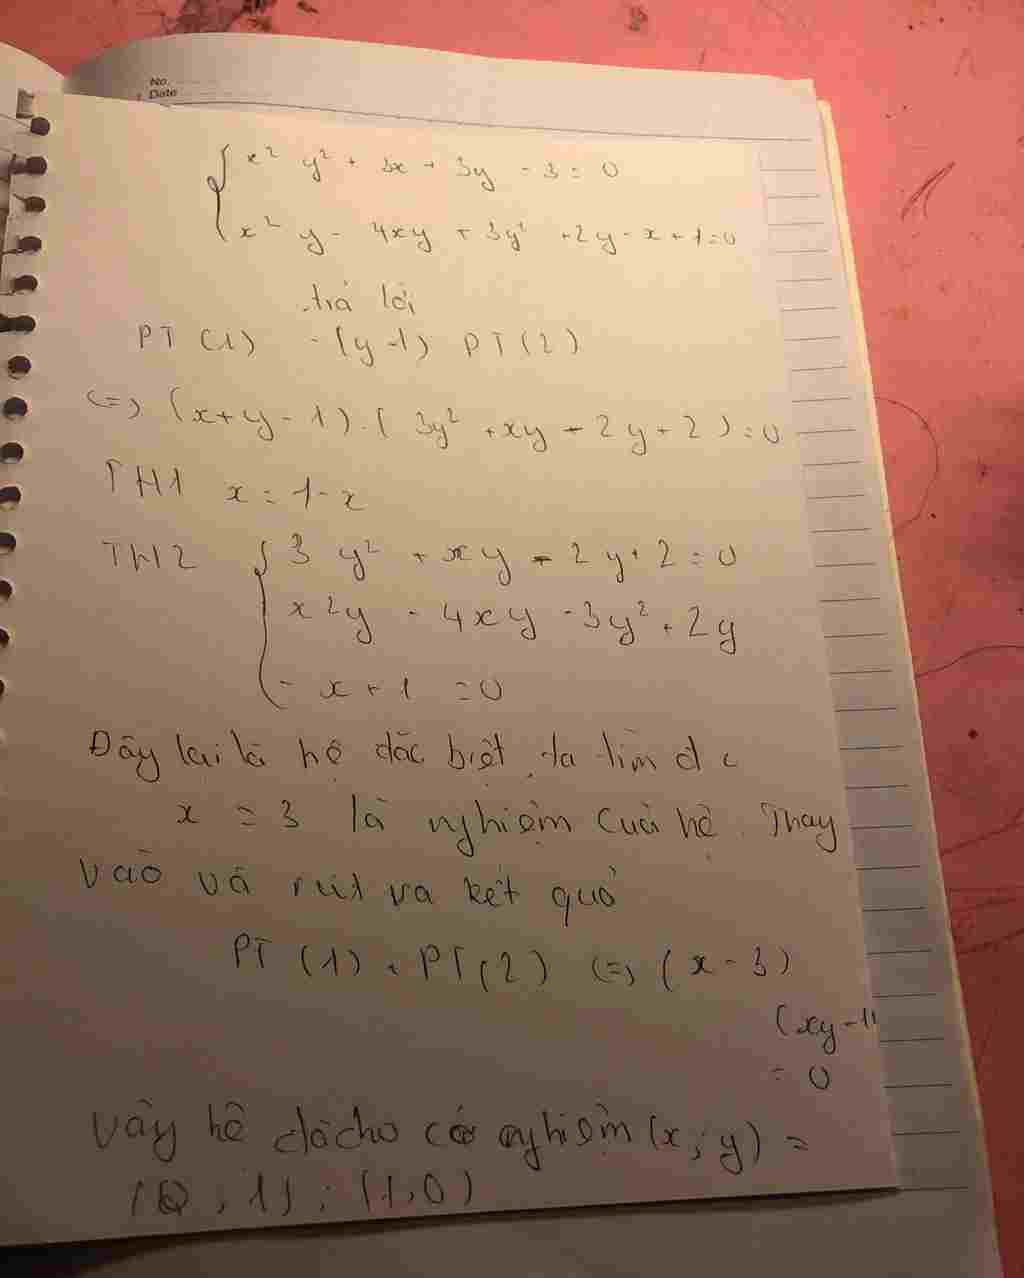 No.
Date
x² y² + 3x + 3y - 3 = 0
x² y - 4xy + 3y² + 2y - x + 1 = 0
trả lời
PT (1) - (y-1) PT(2)
<=> (x+y-1).(3y² + xy - 2y + 2) = 0
TH1 x = 1 - x
TH2 3y² + xy - 2y + 2 = 0
x²y - 4xy - 3y² + 2y
- x + 1 = 0
Đây lại là hệ đăc biệt, ta tìm đ c
x = 3 là nghiệm cuả hệ. Thay
vào và rút ra kết quả
PT (1) + PT(2) <=> (x - 3)
(xy - 1)
= 0
Vậy hê đã cho có nghiệm (x; y) =
(0, 1); (1, 0)